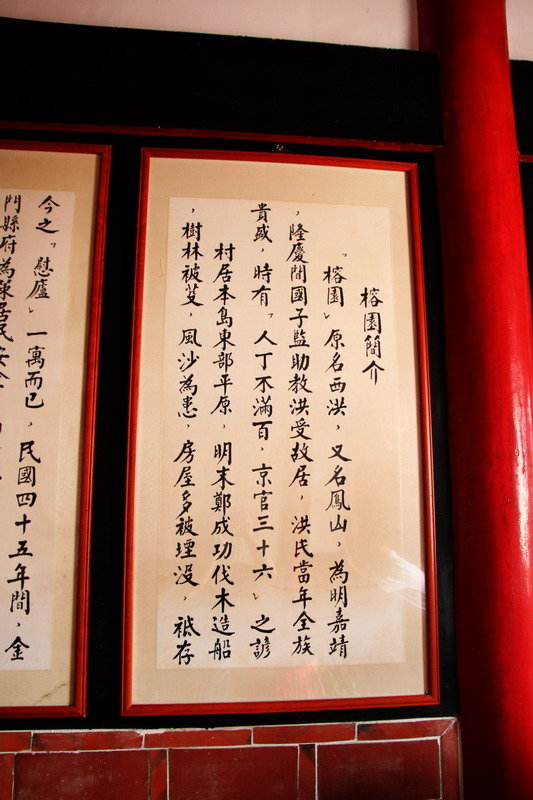 榕園簡介
「榕園」原名西洪，又名鳳山，為明嘉靖
，隆慶間國子監助教洪受故居，洪氏當年全族
貴盛，時有「人丁不滿百，京官三十六」之諺
村居本島東部平原，明末鄭成功伐木造船
，樹林被芟，風沙為患，房屋多被埋没，祗存
今之「慰廬」一寓而已，民國四十五年間，金
門縣府為策居民安全